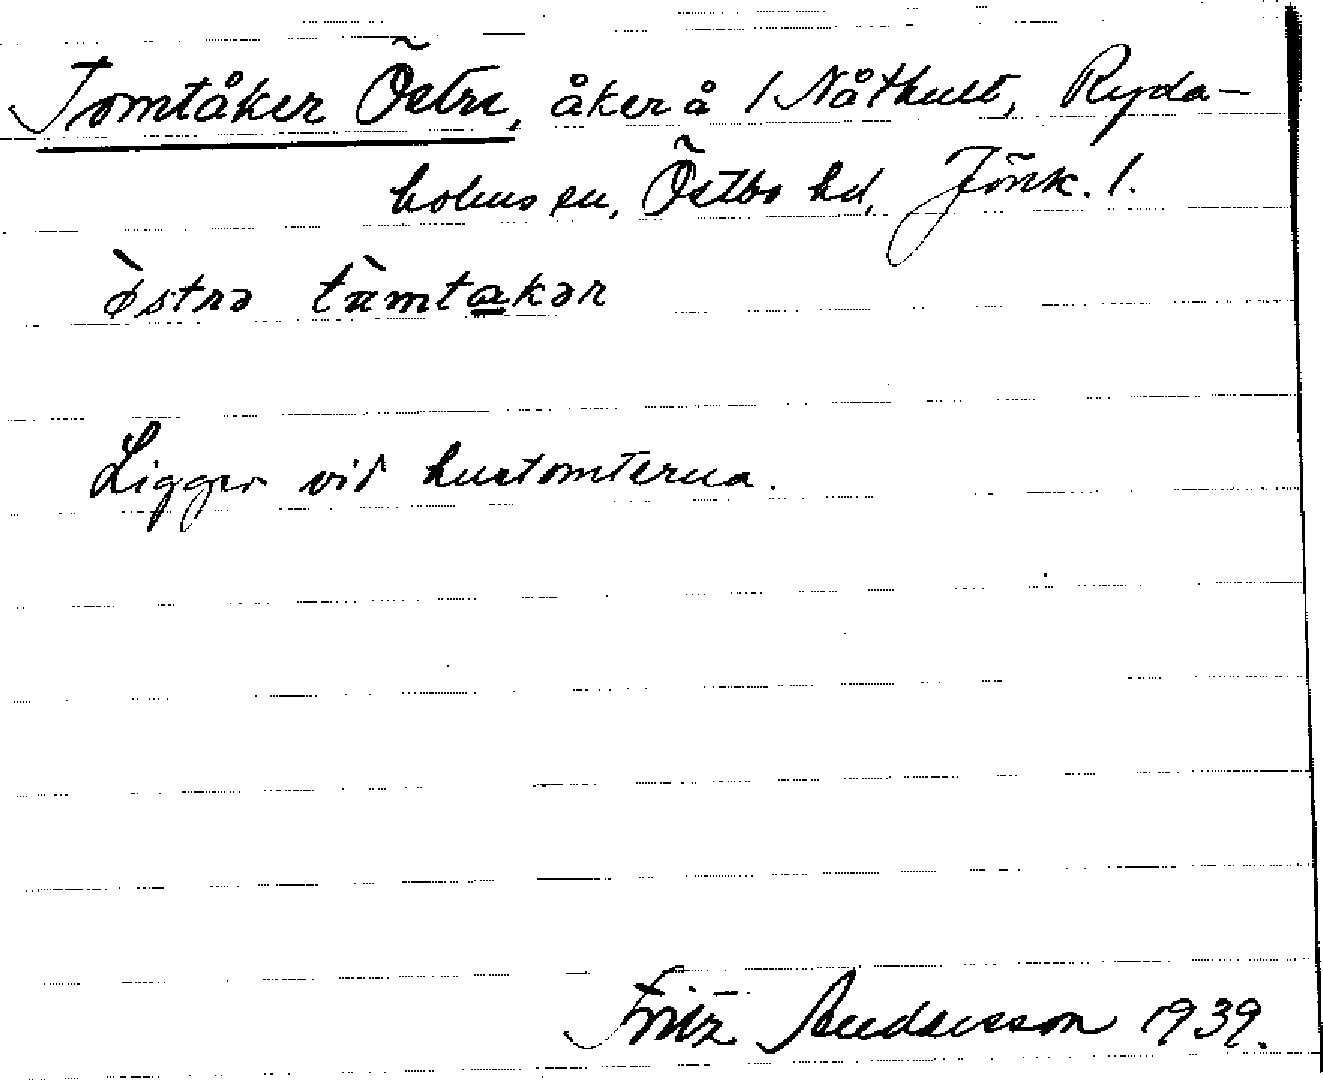 Tomtåker Östre, åker å / Nåthult, Ryda-
holms sn, Östbo hd, Jönk. l.
òstrə tùmtakər
Ligger vid hustomterna.
Fritz Andersson 1939.